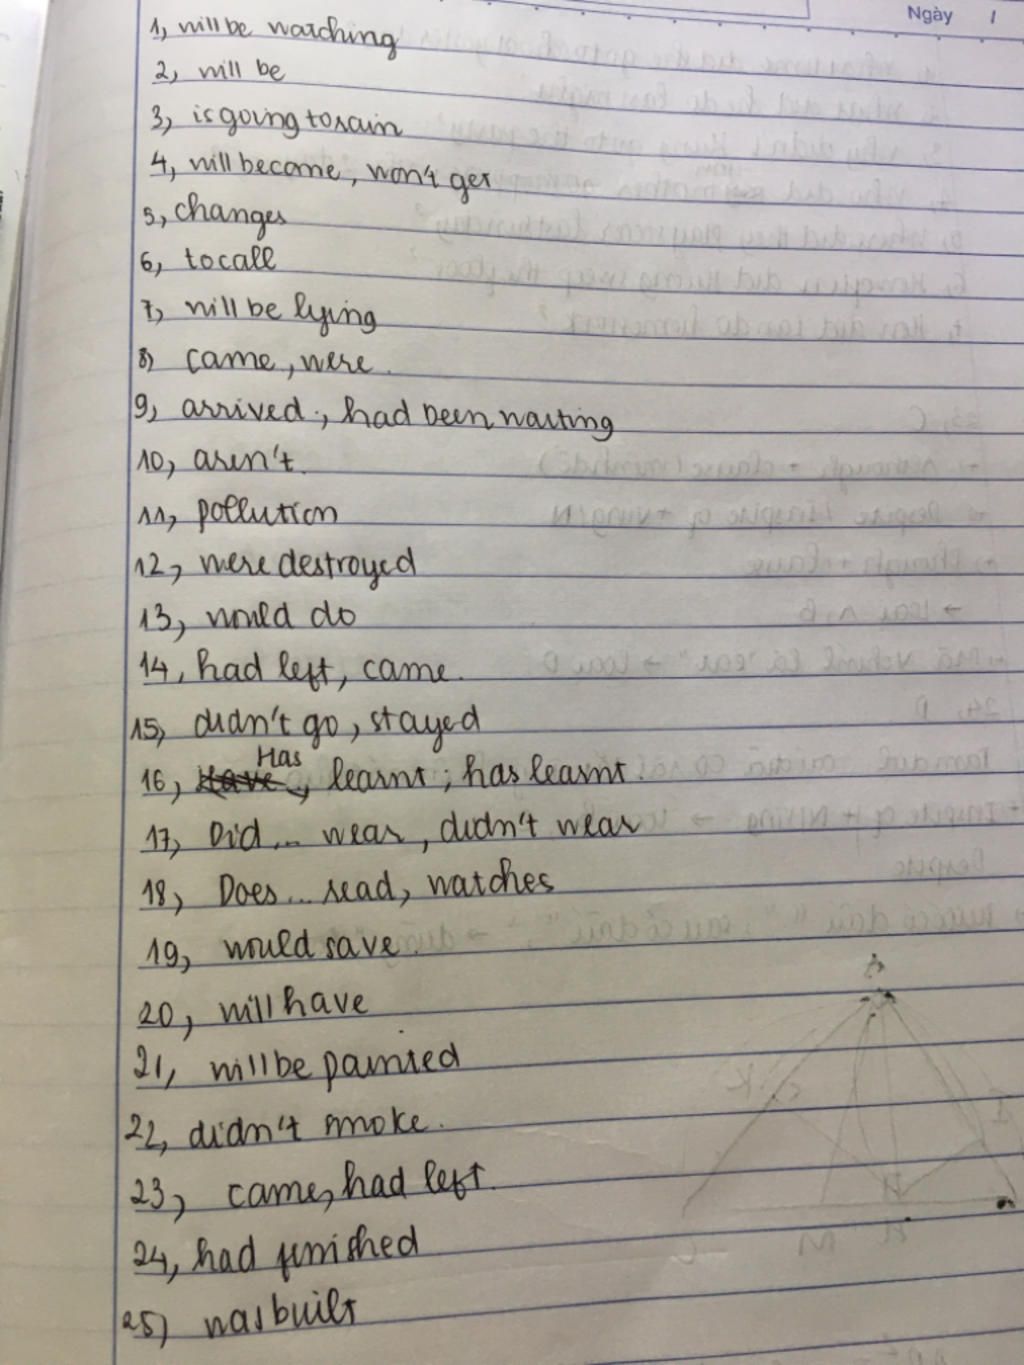 Ngày
1, will be watching
2, will be
3, is going to rain
4, will become, won't get
5, changes
6, to call
7, will be lying
8, came, were.
9, arrived; had been waiting
10, aren't.
11, pollution
12, were destroyed
13, would do
14, had left, came.
15, didn't go, stayed
Has
16, Have, learnt; has learnt.
17, Did... wear, didn't wear
18, Does... read, watches
19, would save.
20, will have
21, will be painted
22, didn't smoke.
23, came, had left.
24, had finished
25, was built